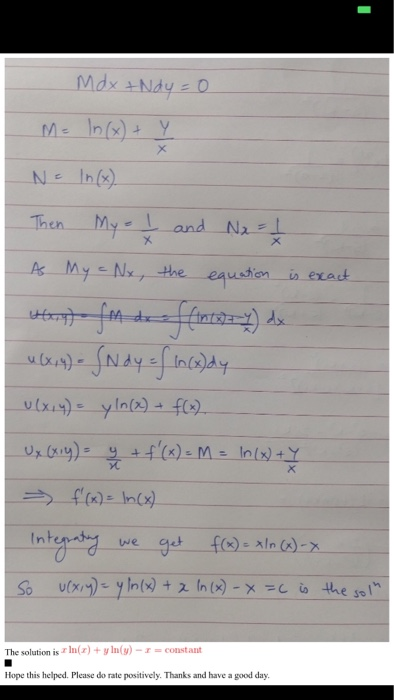 Mdx + Ndy = 0
M = ln(x) + y/x
N = ln(x)
Then My = 1/x and Nx = 1/x
As My = Nx, the equation is exact
u(x,y) = ∫M dx = ∫(ln(x) + y/x) dx
u(x,y) = ∫Ndy = ∫ln(x)dy
u(x,y) = yln(x) + f(x)
Ux(x,y) = y/x + f'(x) = M = ln(x) + y/x
⇒ f'(x) = ln(x)
Integrating we get f(x) = xln(x) - x
So u(x,y) = yln(x) + x ln(x) - x = c is the solⁿ
The solution is x ln(x) + y ln(y) − x = constant
Hope this helped. Please do rate positively. Thanks and have a good day.